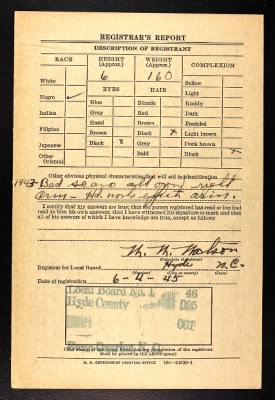 REGISTRAR'S REPORT
DESCRIPTION OF REGISTRANT
RACE
HEIGHT (Approx.)
WEIGHT (Approx.)
COMPLEXION
White
6
160
Sallow
Negro ✓
EYES
HAIR
Light
Indian
Blue
Blonde
Ruddy
Gray
Red
Dark
Filipino
Hazel
Brown
Freckled
Brown
Black X
Light brown
Japanese
Black X
Gray
Dark brown
Other
Oriental
Bald
Black X
Other obvious physical characteristics that will aid in identification
Bad scars all over right
arm
I certify that my answers are true; that the person registered has read or has had
read to him his own answers; that I have witnessed his signature or mark and that
all of his answers of which I have knowledge are true, except as follows:
Registrar for Local Board Hyde N.C.
Date of registration 6-4-45
Local Board No. 1 46
Hyde County 095
001
(The stamp of the Local Board having jurisdiction of the registrant
shall be placed in the above space)
U. S. GOVERNMENT PRINTING OFFICE